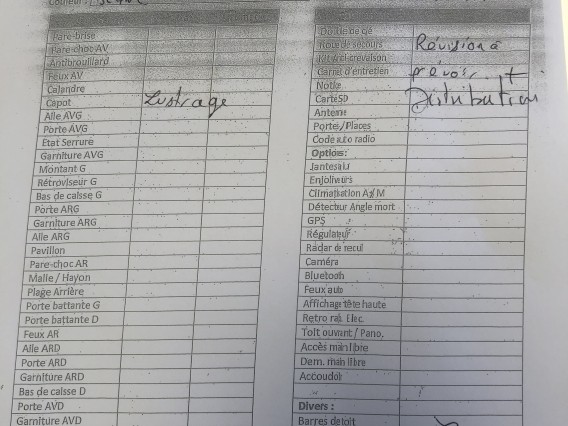 Couleur :
Pare-brise
Pare-choc AV
Antibrouillard
Feux AV
Calandre
Capot Lustrage
Aile AVG
Porte AVG
Etat Serrure
Garniture AVG
Montant G
Rétroviseur G
Bas de caisse G
Porte ARG
Garniture ARG
Aile ARG
Pavillon
Pare-choc AR
Malle / Hayon
Plage Arrière
Porte battante G
Porte battante D
Feux AR
Aile ARD
Porte ARD
Garniture ARD
Bas de caisse D
Porte AVD
Garniture AVD
Double de clé
Roue de secours Révision à
Kit Anti crevaison
Carnet d'entretien prévoir +
Notice
Carte SD Distribution
Antenne
Portes/Places
Code auto radio
Options:
Jantes alu
Enjoliveurs
Climatisation A/M
Détecteur Angle mort
GPS
Régulateur
Radar de recul
Caméra
Bluetooth
Feux auto
Affichage tête haute
Retro rab. Elec.
Toit ouvrant / Pano.
Accès main libre
Dem. main libre
Accoudoir
Divers :
Barres de toit